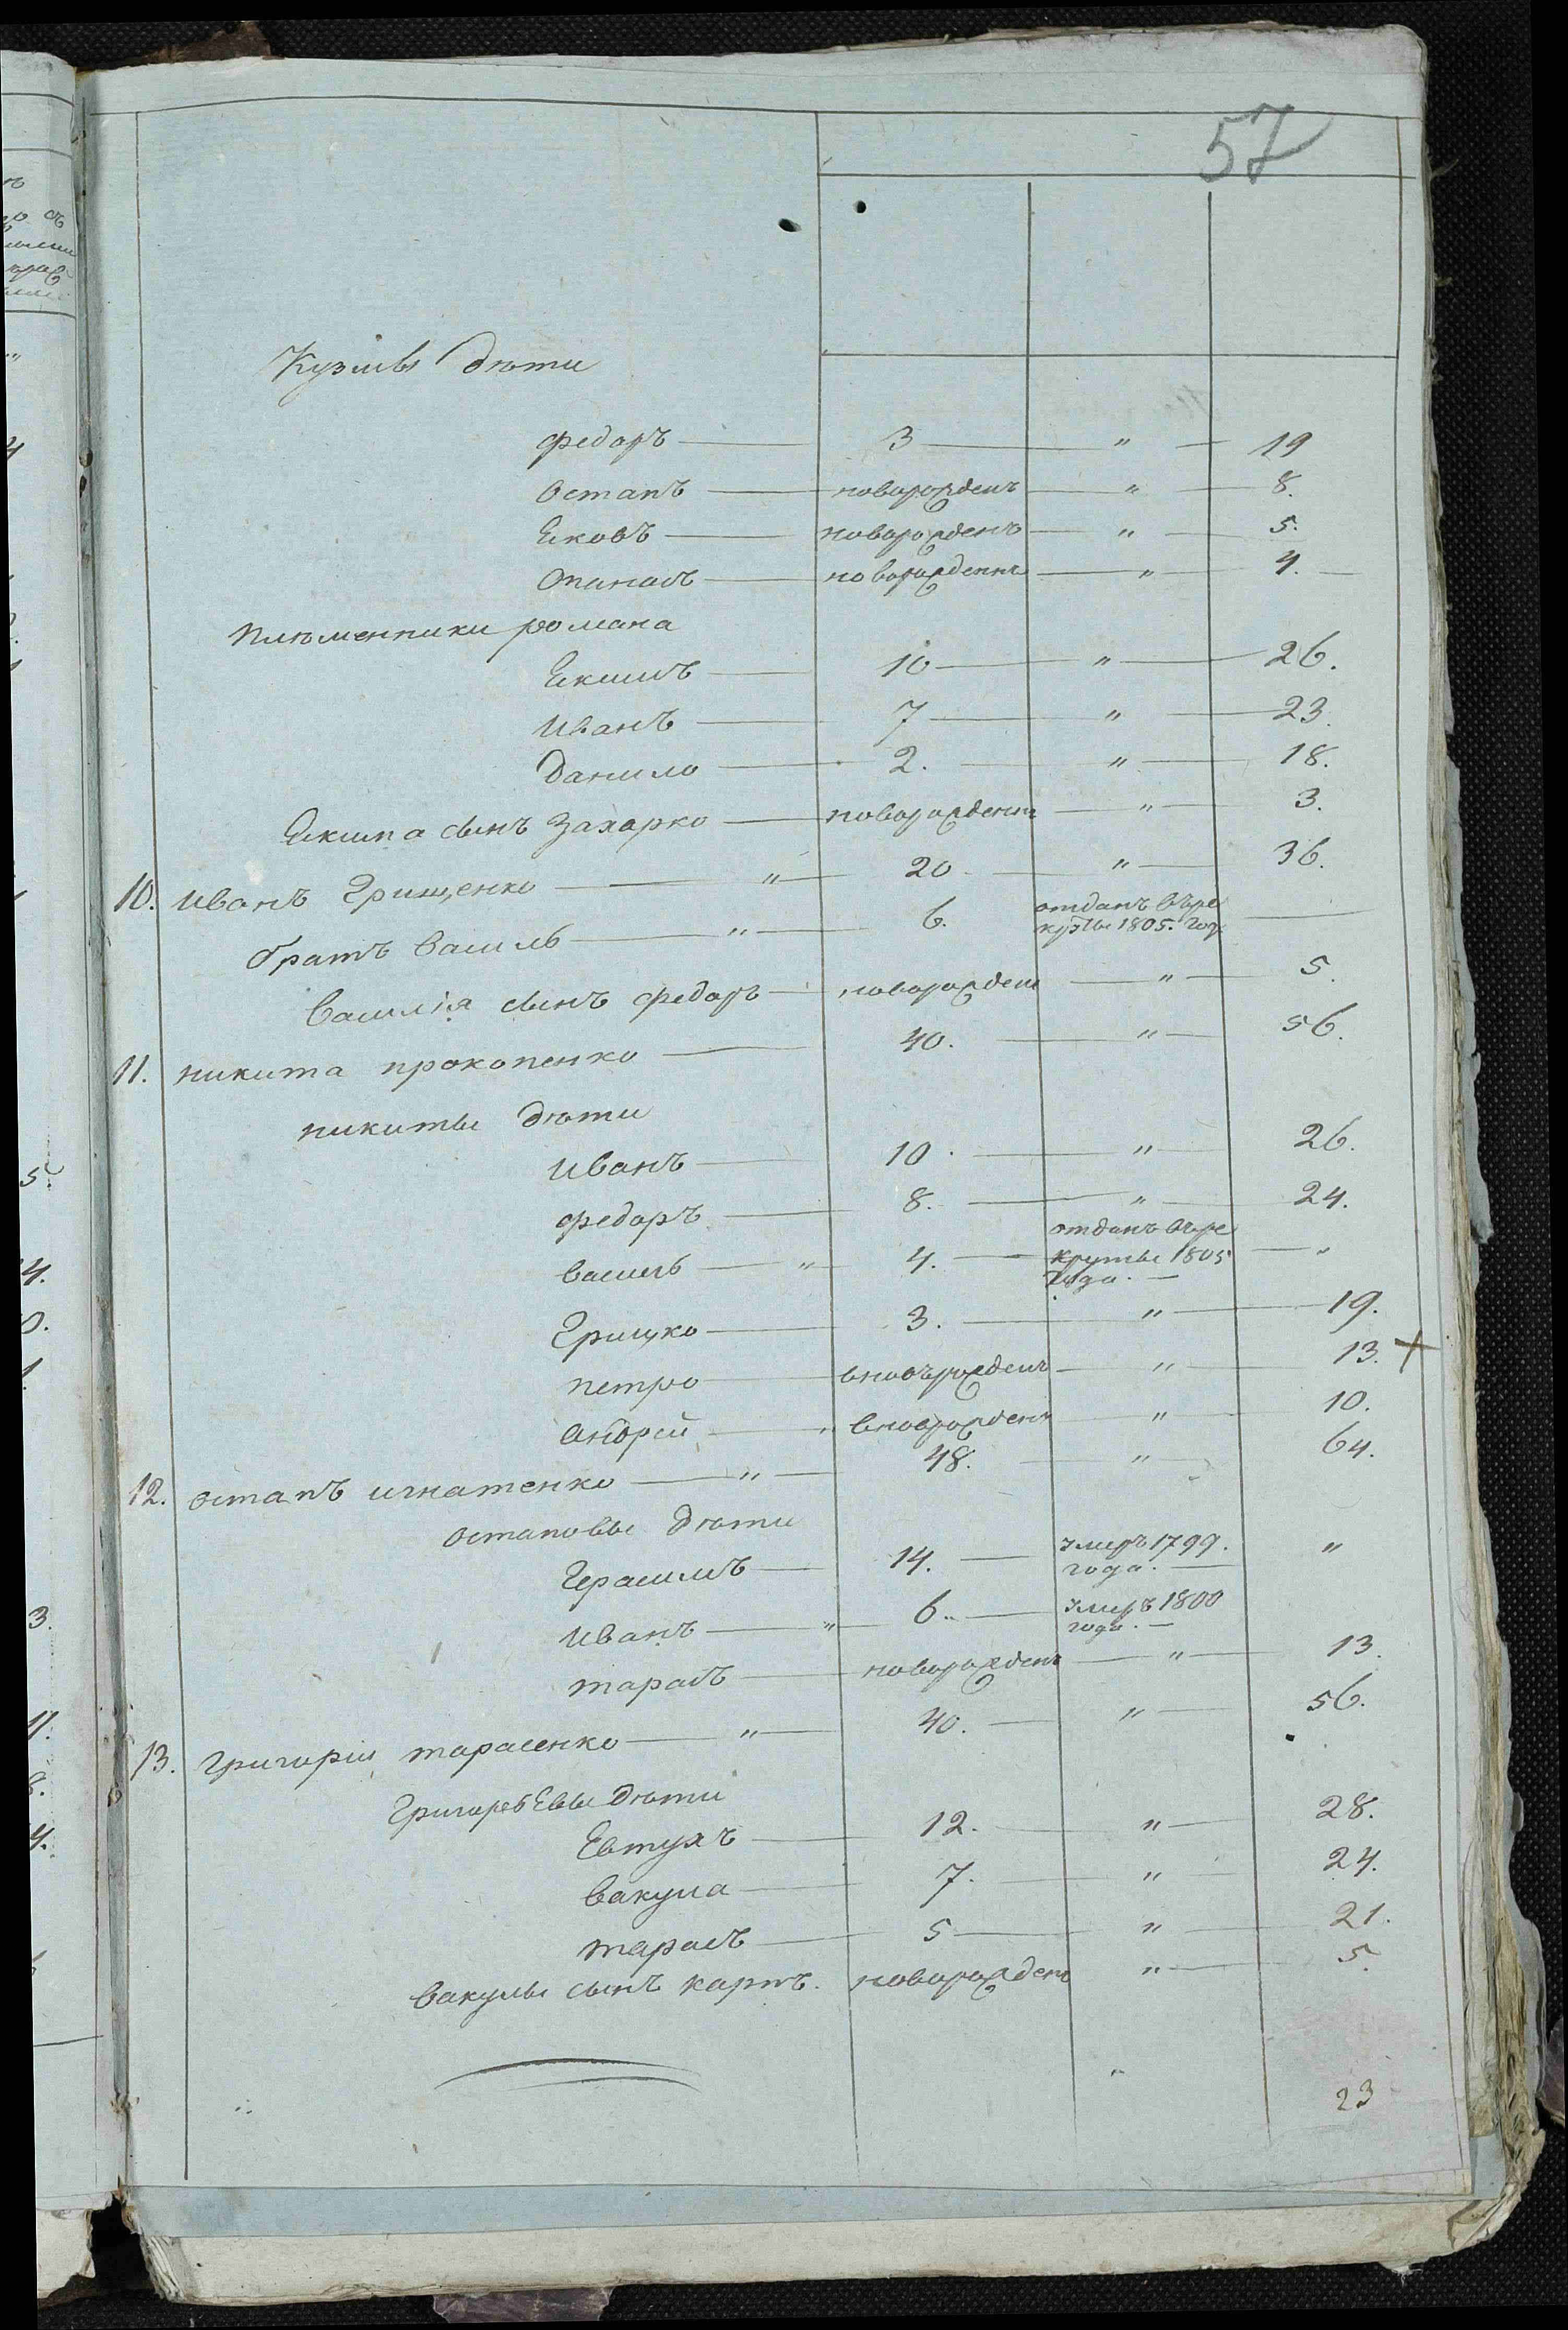 57
Кузмы дѣти
федоръ — 3 — " — 19
Остапъ — новорожденъ — " — 8.
Яковъ — новорожденъ — " — 5.
Опанасъ — новорожденъ — " — 4. —
племенники романа
Якимъ — 10 — " — 26.
Иванъ — 7 — " — 23.
Данило — 2. — " — 18.
Якима сынъ Захарко — новорожденъ — " — 3.
10. Иванъ Грищенко — " — 20 — " — 36.
братъ Василь — " — 6. отданъ въре
круты 1805. году —
Василія сынъ федоръ — новорожденъ — " — 5.
11. никита прокопенко — 40. — " — 56.
никиты дѣти
Иванъ — 10. — " — 26.
федоръ — 8. — " — 24.
Василь — " — 4. — отданъ въре
круты 1805 — "
года. —
Грицко — 3. — " — 19.
петро — вновърожденъ — " — 13. +
Андрей — вноврожденъ — " — 10.
12. остапъ игнатенко — " — 48. — " — 64.
остаповы дѣти
Герасимъ — 14. — умеръ 1799. "
года. —
Иванъ — " — 6. — умеръ 1800
года. —
тарасъ — новорожденъ — " — 13.
13. григорій тарасенко — " — 40. — " — 56.
ГригорьЕвы дѣти
Евтухъ — 12. — " — 28.
Вакула — 7. — " — 24.
тарасъ — 5 — " — 21.
Вакулы сынъ карпъ. новорожденъ " — 5.
23